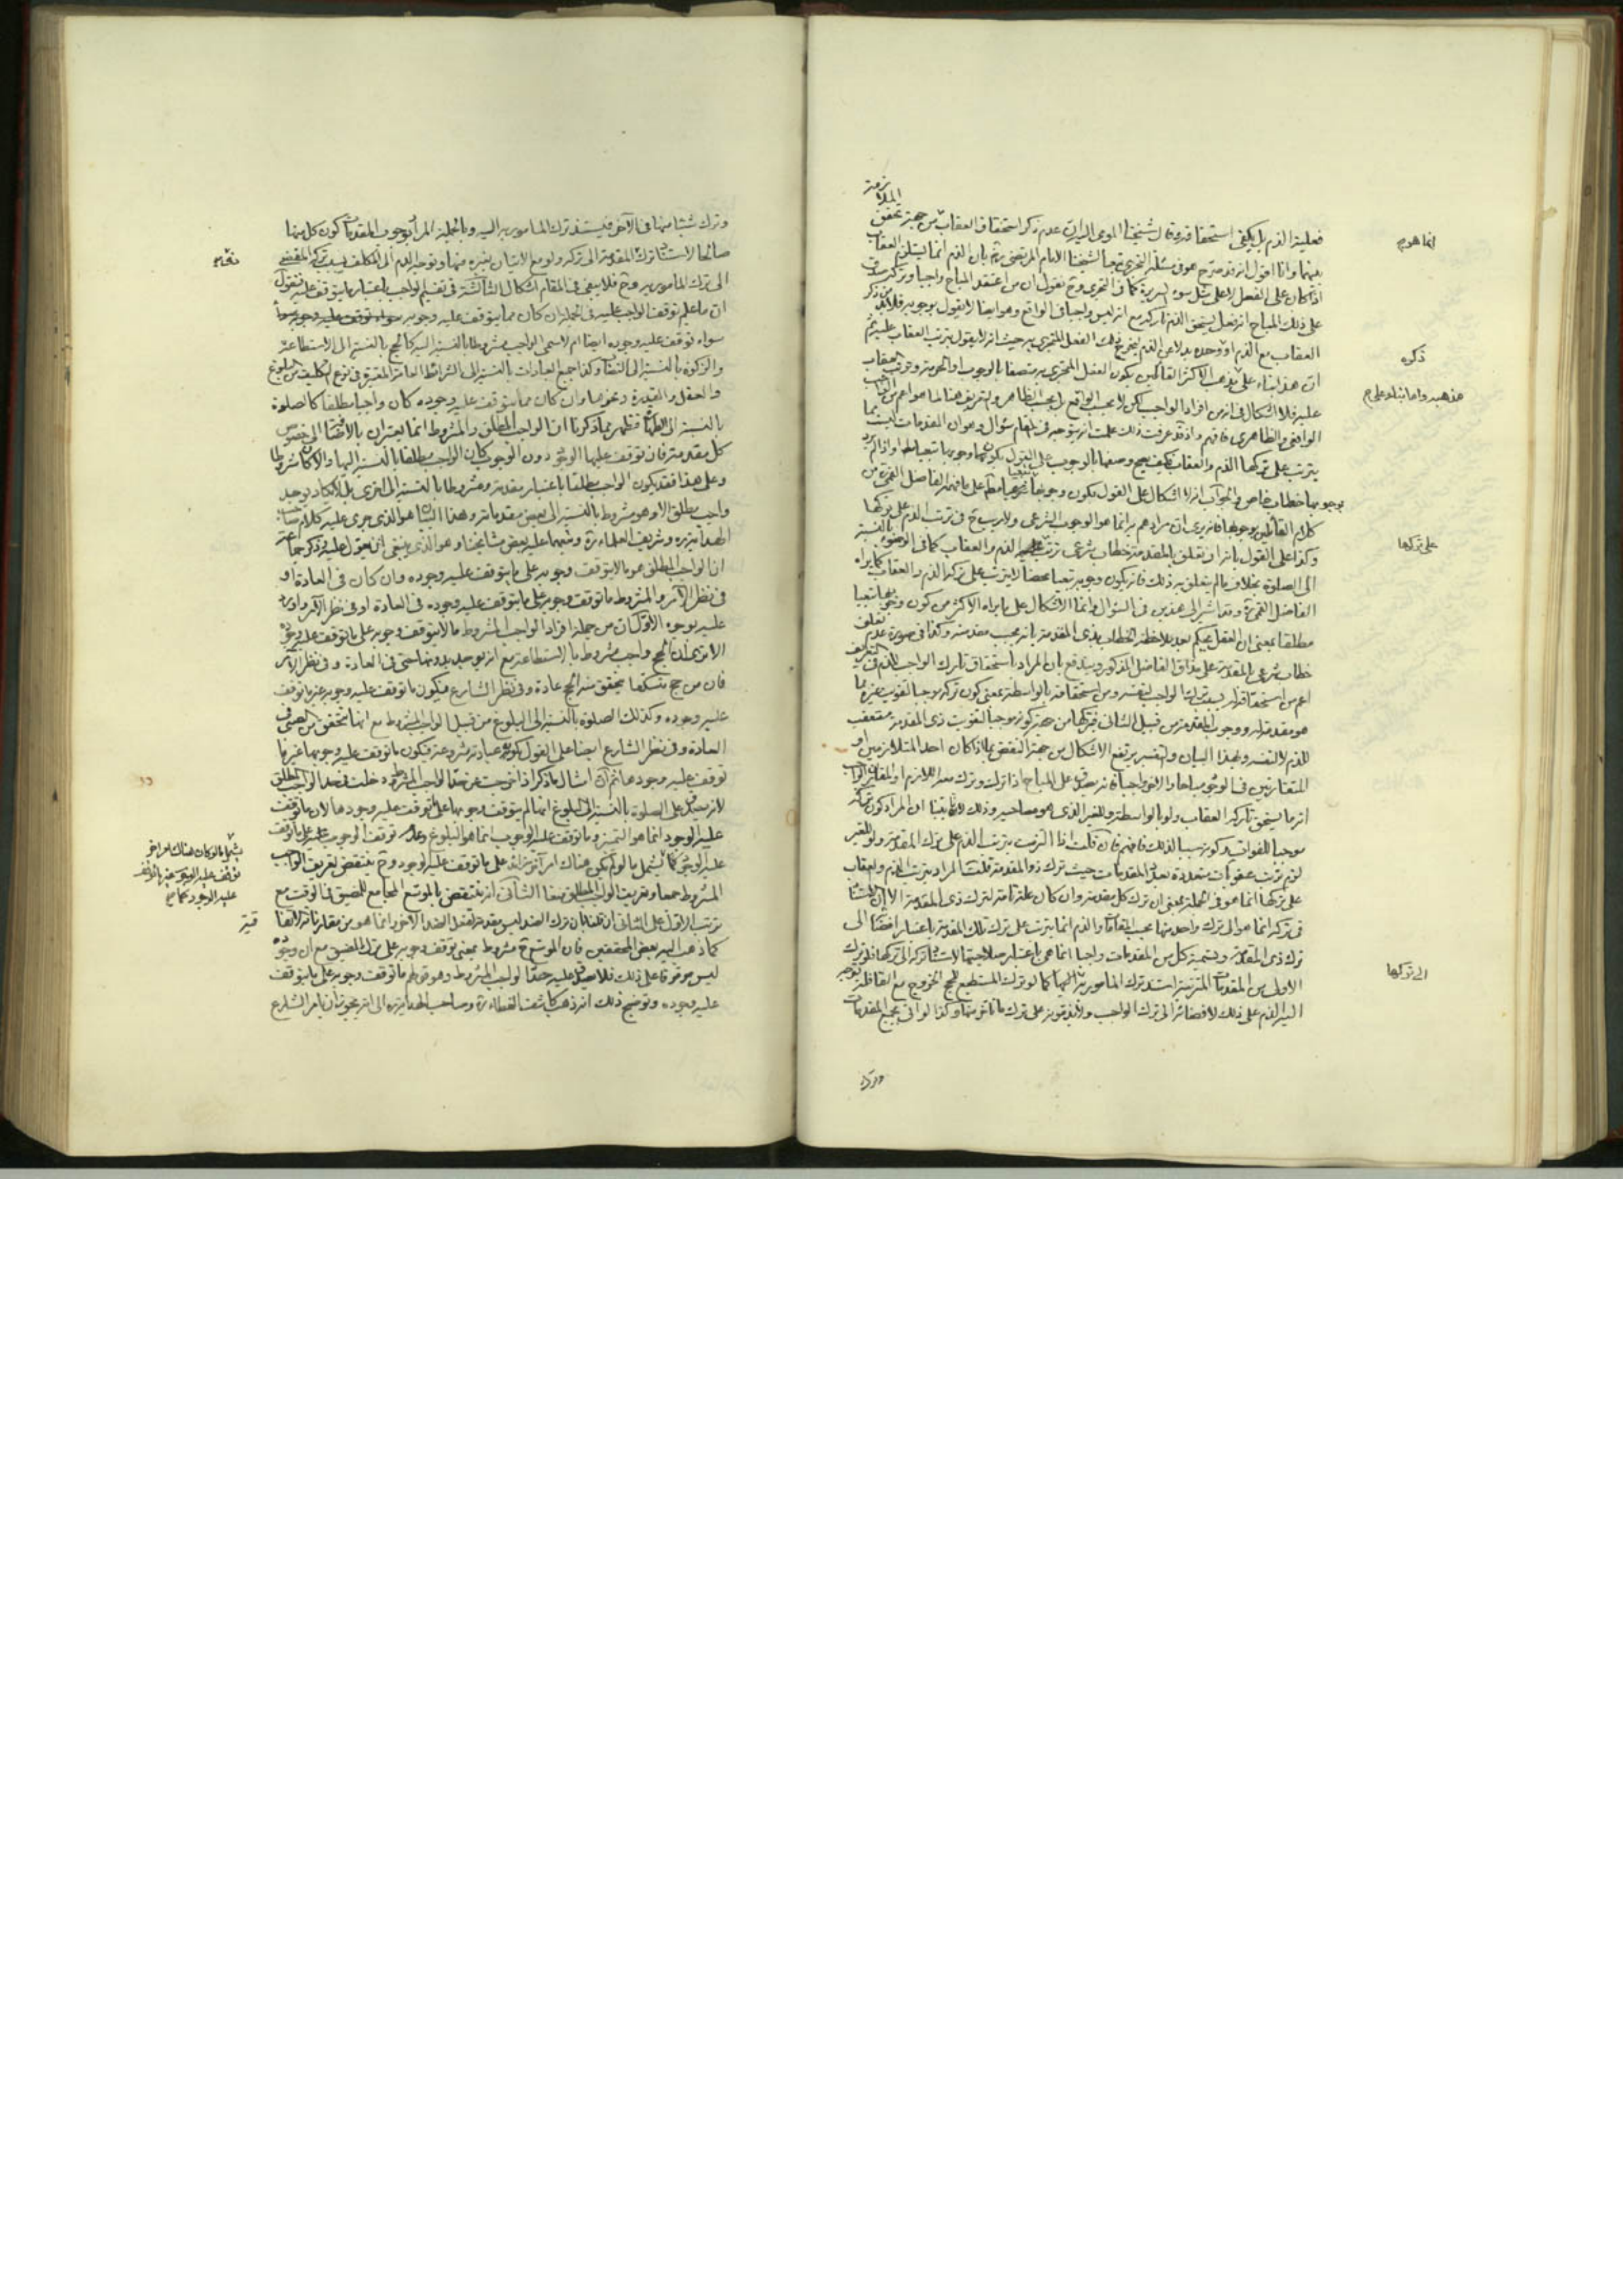 فعلية الذم بل يكفي استحقاقه وقال شيخنا المومى اليه ان عدم ذكر استحقاق العقاب من جهة تحقق الملازمة
بينهما وانا اقول انه قد صرح هو في مسئلة التجري تبعا لشيخنا الامام المرتضى بان الذم انما يستلزم العقاب
اذا كان على الفعل لا على مثل سوء السريرة كما في التجري وح نقول ان من اعتقد المباح واجبا وتركه
على ذلك المباح انه فعل يستحق الذم تاركه مع انه ليس واجبا في الواقع وهو ايضا لا يقول بوجوبه فلا بد من ذكر
العقاب مع الذم او وحده بدلا عن الذم ليخرج ذلك الفعل المتجري به حيث انه لا يقول بترتب العقاب عليه ثم
ان هذا بناء على مذهب الاكثر القائلين بكون الفعل المتجري به متصفا بالوجوب او الحرمة وترتب العقاب
عليه فلا اشكال في انه من افراد الواجب لكن لا بحسب الواقع بل بحسب الظاهر والتعريف هنا لما هو اعم من الواجب
الواقعي والظاهري فافهم واذ قد عرفت ذلك علمت انه يتوجه في المقام سؤال وهو ان المقدمات ليست مما
يترتب على تركها الذم والعقاب فكيف يصح وصفها بالوجوب على القول بكون وجوبها تبعيا
بوجوبها خطاب خاص والجواب انه لا اشكال على القول بكون وجوبها
كلام القائلين بوجوبها فانه يرى ان مرادهم به انما هو الوجوب الشرعي ولا ريب ح في ترتب الذم على تركها
وكذا على القول بانه ان تعلق بالمقدمة خطاب شرعي ترتب عليه الذم والعقاب كما في الوضوء بالنسبة
الى الصلوة بخلاف ما لم يتعلق به ذلك فانه يكون وجوبه تبعيا محضا لا يترتب على تركه الذم والعقاب كما يراه
الفاضل القمي ره وقد اشير الى هذين في السؤال وانما الاشكال على ما يراه الاكثر من كون وجوبها تبعيا
مطلقا بمعنى ان العقل يحكم بعد ملاحظة الخطاب بذي المقدمة بانه يجب مقدمته وكذا في صورة عدم تعلق
خطاب شرعي بالمقدمة على مذاق الفاضل المذكور ويندفع بان المراد باستحقاق تارك الواجب للذم في التعريف
اعم من استحقاقه له بسبب ترك الواجب لنفسه ومن استحقاقه بالواسطة بمعنى كون تركه موجبا لتفويت غيره مما
هو مقدمة له ووجوب المقدمة من قبيل الثاني فتركها من جهة كونه موجبا لتفويت ذي المقدمة مستعقب
للذم لا لنفسه وبهذا البيان والتفسير يرتفع الاشكال من جهة النقض بما اذا كان احد المتلازمين او
المتقارنين في الوجود مباحا والآخر واجبا فانه يصدق على المباح اذا ترك وترك معه اللازم او المقارن الواجب
انه مما يستحق تاركه العقاب ولو بالواسطة وللغير الذي هو مصاحبه وذلك لانا بينا ان المراد كون تركه
موجبا للفوات وكونه سببا لذلك فافهم فان قلت اذا التزمت بترتب الذم على ترك المقدمة ولو للغير
لزم ترتب عقوبات متعددة بعدد المقدمات حيث ترك ذو المقدمة قلت المراد بترتب الذم والعقاب
على تركها انما هو في الجملة بمعنى ان ترك كل مقدمة وان كان علة تامة لترك ذي المقدمة الا ان الاستناد
في تركه انما هو الى ترك واحد منها بحسب المقامات والذم انما يترتب على ترك تلك المقدمة باعتبار افضائه الى
ترك ذي المقدمة وتسمية كل من المقدمات واجبا انما هي باعتبار صلاحيتها لاستناد تركه الى تركها فلو ترك
الاول من المقدمات المترتبة استند ترك المأمور به اليها كما لو ترك المستطيع للحج الخروج مع القافلة توجه
اليه الذم على ذلك لافضائه الى ترك الواجب ولا يذمونه على ترك ما تاخر منها وكذا لو اتى بجميع المقدمات
وترك
انما هو م
ذكره
مذهبه واما بناء على م
على تركها
الى تركها
وترك شيئا منها في الآخر فيستند ترك المامور به اليه وبالجملة المراد بوجوب المقدمات كون كل منها
صالحا لاستناد ترك المقدمة الى تركه ولو مع الاتيان بغيره منها وتوجه الذم الى المكلف بسبب تركه المفضي
الى ترك المامور به وح فلا يبقى في المقام اشكال الثالثة في تقسيم الواجب باعتبار ما يتوقف عليه فنقول
ان ما علم توقف الواجب عليه في الجملة ان كان مما يتوقف عليه وجوبه
سواء توقف عليه وجوده ايضا ام لا سمي الواجب مشروطا بالنسبة اليه كالحج بالنسبة الى الاستطاعة
والزكوة بالنسبة الى النصاب وكذا جميع العبادات بالنسبة الى الشرائط العامة المعتبرة في نوع التكليف من البلوغ
والعقل والقدرة ونحوها وان كان مما يتوقف عليه وجوده كان واجبا مطلقا كالصلوة
بالنسبة الى الطهارة فظهر مما ذكرنا ان الواجب المطلق والمشروط انما يعتبران بالاضافة الى خصوص
كل مقدمة فان توقف عليها الوجود دون الوجوب كان الواجب مطلقا بالنسبة اليها والا كان مشروطا
وعلى هذا فقد يكون الواجب مطلقا باعتبار مقدمة ومشروطا بالنسبة الى اخرى بل لا يكاد يوجد
واجب مطلق الا وهو مشروط بالنسبة الى بعض مقدماته وهذا البيان هو الذي جرى عليه كلام صاحب
الهداية ره وشريف العلماء ره وتبعهما عليه بعض مشايخنا وهو الذي ينبغي ان يعول عليه وذكر جماعة
ان الواجب المطلق هو ما لا يتوقف وجوبه على ما يتوقف عليه وجوده وان كان في العادة او
في نظر الآمر والمشروط ما توقف وجوبه على ما يتوقف عليه وجوده في العادة او في نظر الآمر واورد
عليه بوجوه الاول ان من جملة افراد الواجب المشروط ما لا يتوقف وجوبه على ما يتوقف عليه وجوده
الا ترى ان الحج واجب مشروط بالاستطاعة مع انه يوجد بدونها حتى في العادة وفي نظر الآمر
فان من حج متسكعا يتحقق منه الحج عادة وفي نظر الشارع فيكون ما توقف عليه وجوبه غير ما توقف
عليه وجوده وكذلك الصلوة بالنسبة الى البلوغ من قبيل الواجب المشروط مع انها تتحقق من الصبي في
العادة وفي نظر الشارع ايضا على القول بكون عباداته مشروعة فيكون ما توقف عليه وجوبها غير ما
توقف عليه وجودها ثم ان امثال ما ذكر اذا خرجت عن حد الواجب المشروط دخلت في حد الواجب المطلق
لانه يصدق على الصلوة بالنسبة الى البلوغ انها لم يتوقف وجوبها على ما توقف عليه وجودها لان ما توقف
عليه الوجود انما هو التمييز وما توقف عليه الوجوب انما هو البلوغ وعدم توقف الوجوب على ما توقف
عليه الوجود كما يشمل ما لو لم يكن هناك امر آخر توقف على ما توقف عليه الوجود وح ينتقض تعريف الواجب
المشروط جمعا وتعريف الواجب المطلق منعا الثاني انه ينتقض بالموسع المجامع للمضيق في الوقت مع
ترتب الاول على الثاني ان قلنا بان ترك الضد ليس مقدمة لفعل الضد الآخر وانما هو من مقارناته الاتفا
كما ذهب اليه بعض المحققين فان الموسع ح مشروط بمعنى توقف وجوبه على ترك المضيق مع ان وجوده
ليس موقوفا على ذلك فلا يصدق عليه حد الواجب المشروط وهو قولهم ما توقف وجوبه على ما يتوقف
عليه وجوده وتوضيح ذلك انه ذهب كاشف الغطاء ره وصاحب الهداية ره الى انه يجوز ان يامر الشارع
يشمل ما لو كان هناك امر آخر
توقف عليه الوجوب غير ما توقف
عليه الوجود كما م
قية